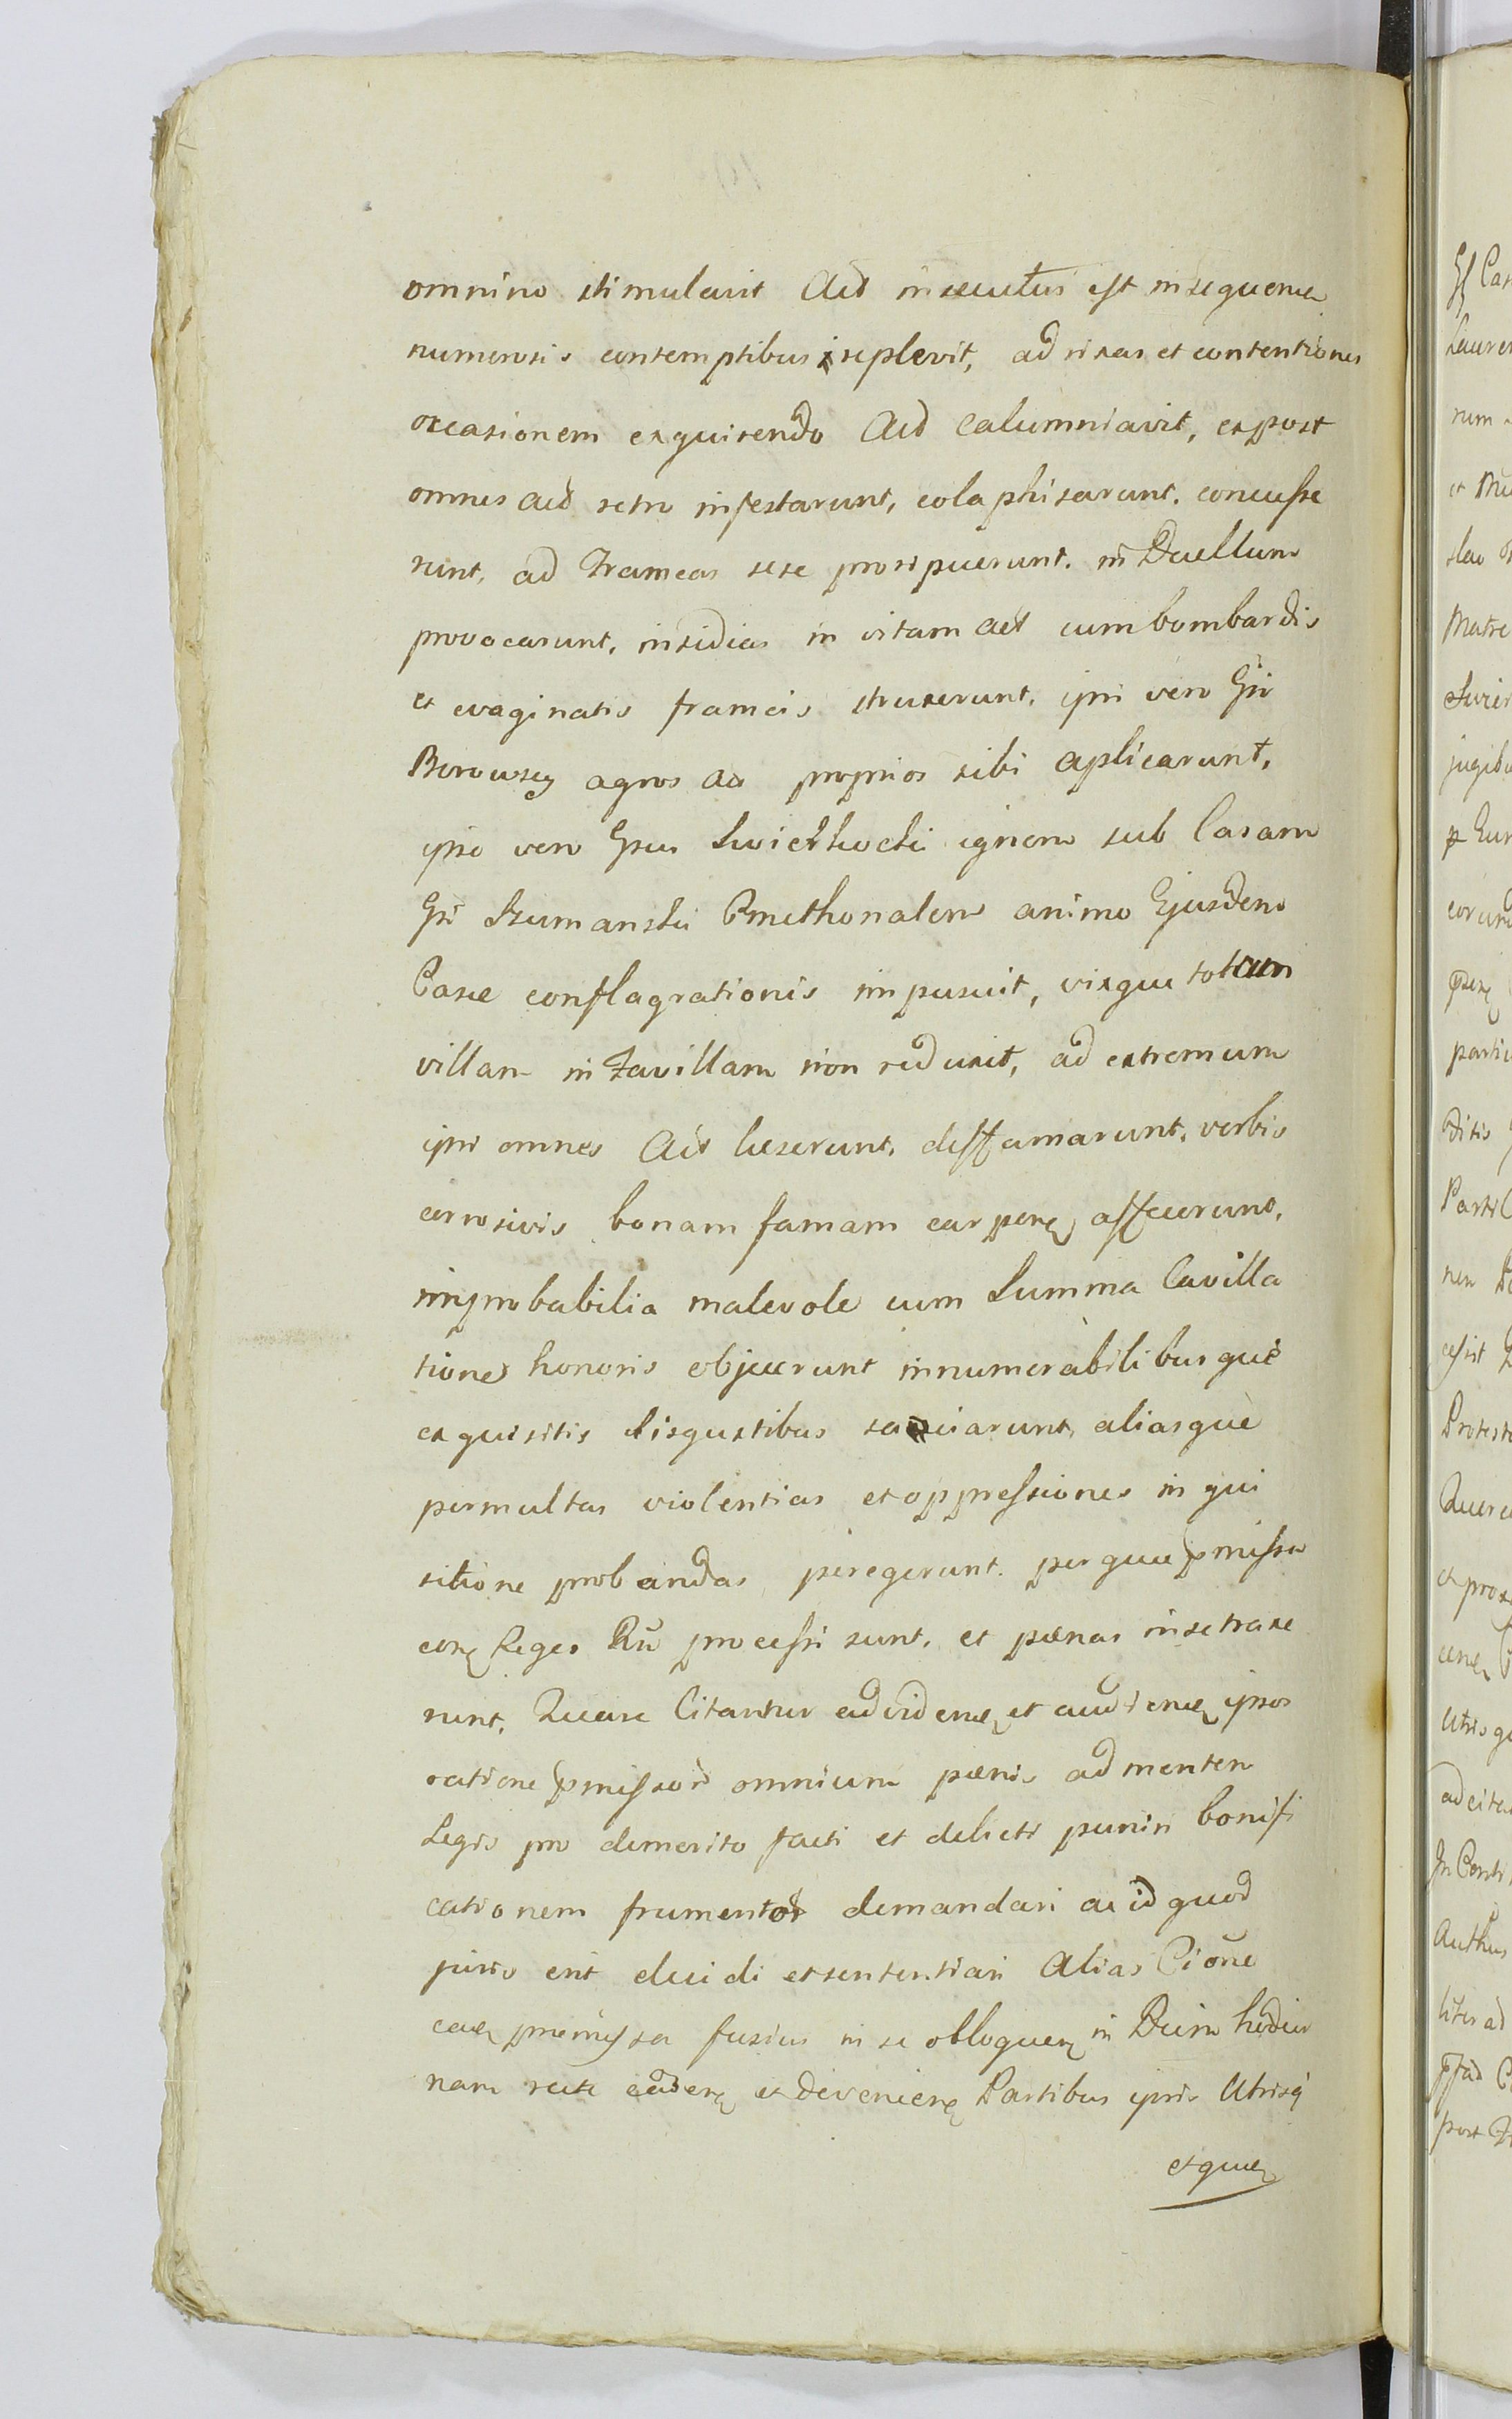 omnino stimulavit Act insecutus est insequene
numerosis contemptibus replevit, ad rixas et contentiones
occasionem exquirendo Act calumniavit, expost
omnes act retro infestarunt, colaphisarunt, concusse
runt, ad Frameas sese proripuerunt, in Duellum
provocarunt, insidias in vitam act cum bombardis
et evaginatis frameis struxerunt, ipsi vero Gsi
agros ac proprios sibi aplicarunt,
ipse vero Gsus ignem sub Casam
Gsi Szumanski Cmethonalem animo Ejusdem
Casae conflagrationis imposuit, vixque totam
villam in Favillam non reduxit, ad extremum
ipsi omnes Act laeserunt, diffamarunt, verbis
corrosivis bonam famam carpere affecerunt,
improbabilia malevole cum Summa Cavilla
tione honoris objecerunt innumerabilibusque
exquisitis disgustibus sauciarunt, aliasque
permultas violentias et oppressiones inqui
sitione probandas peregerunt. per quae pmissa
cone Leges Rñi processi sunt, et paenas in se traxe
runt, Quare Citantur ad videne et audiene ipsos
ratione pmissor omnium paenis ad mentem
Legis pro demerito facti et delicti puniri bonifi
cationem frumentor demandari ac id quod
juris erit decidi et sententiari Alias Ciõne
eade premissa fusius in se obloquen in Diem hodier
nam recte caden et devenien Partibus ipsis Utrisq
etque